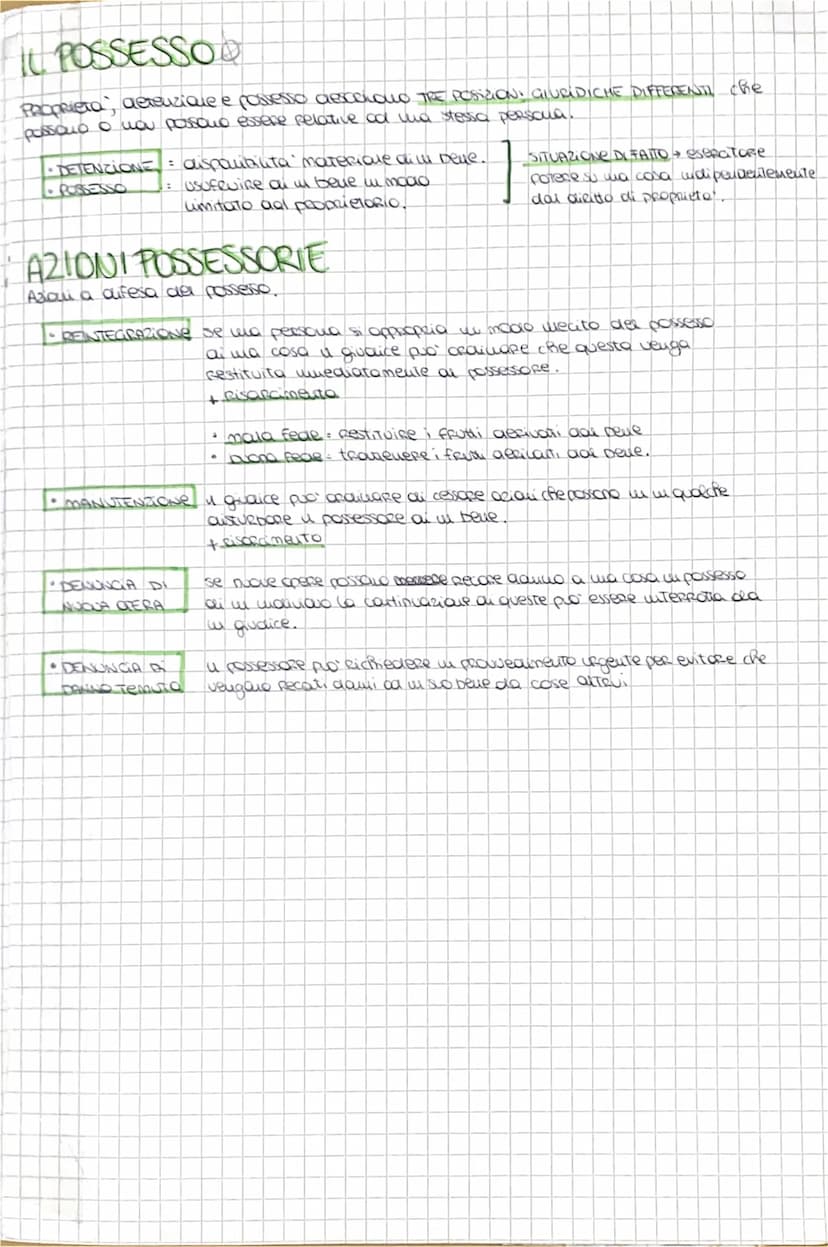 IL POSSESSO
Proprietà, detenzione e possesso descrivono TRE POSIZIONI GIURIDICHE DIFFERENTI che
possono o non possono essere relative ad una stessa persona.
• DETENZIONE : disponibilità materiale di un bene. ] SITUAZIONE DI FATTO → esercitare
• POSSESSO : usufruire di un bene in modo potere su una cosa indipendentemente
limitato dal proprietario. dal diritto di proprietà.
AZIONI POSSESSORIE
Azioni a difesa del possesso.
• REINTEGRAZIONE se una persona si appropria in modo illecito del possesso
di una cosa il giudice può ordinare che questa venga
restituita immediatamente al possessore.
+ risarcimento
• mala fede = restituire i frutti derivati dal bene
• buona fede = trattenere i frutti derivati dal bene.
• MANUTENZIONE il giudice può ordinare di cessare azioni che possono in un qualche
disturbare il possessore di un bene.
+ risarcimento
• DENUNCIA DI se nuove opere possono recare danno a una cosa in possesso
NUOVA OPERA di un individuo la continuazione di queste può essere interrotta da
un giudice.
• DENUNCIA DI il possessore può richiedere un provvedimento urgente per evitare che
DANNO TEMUTO vengano recati danni ad un suo bene da cose altrui